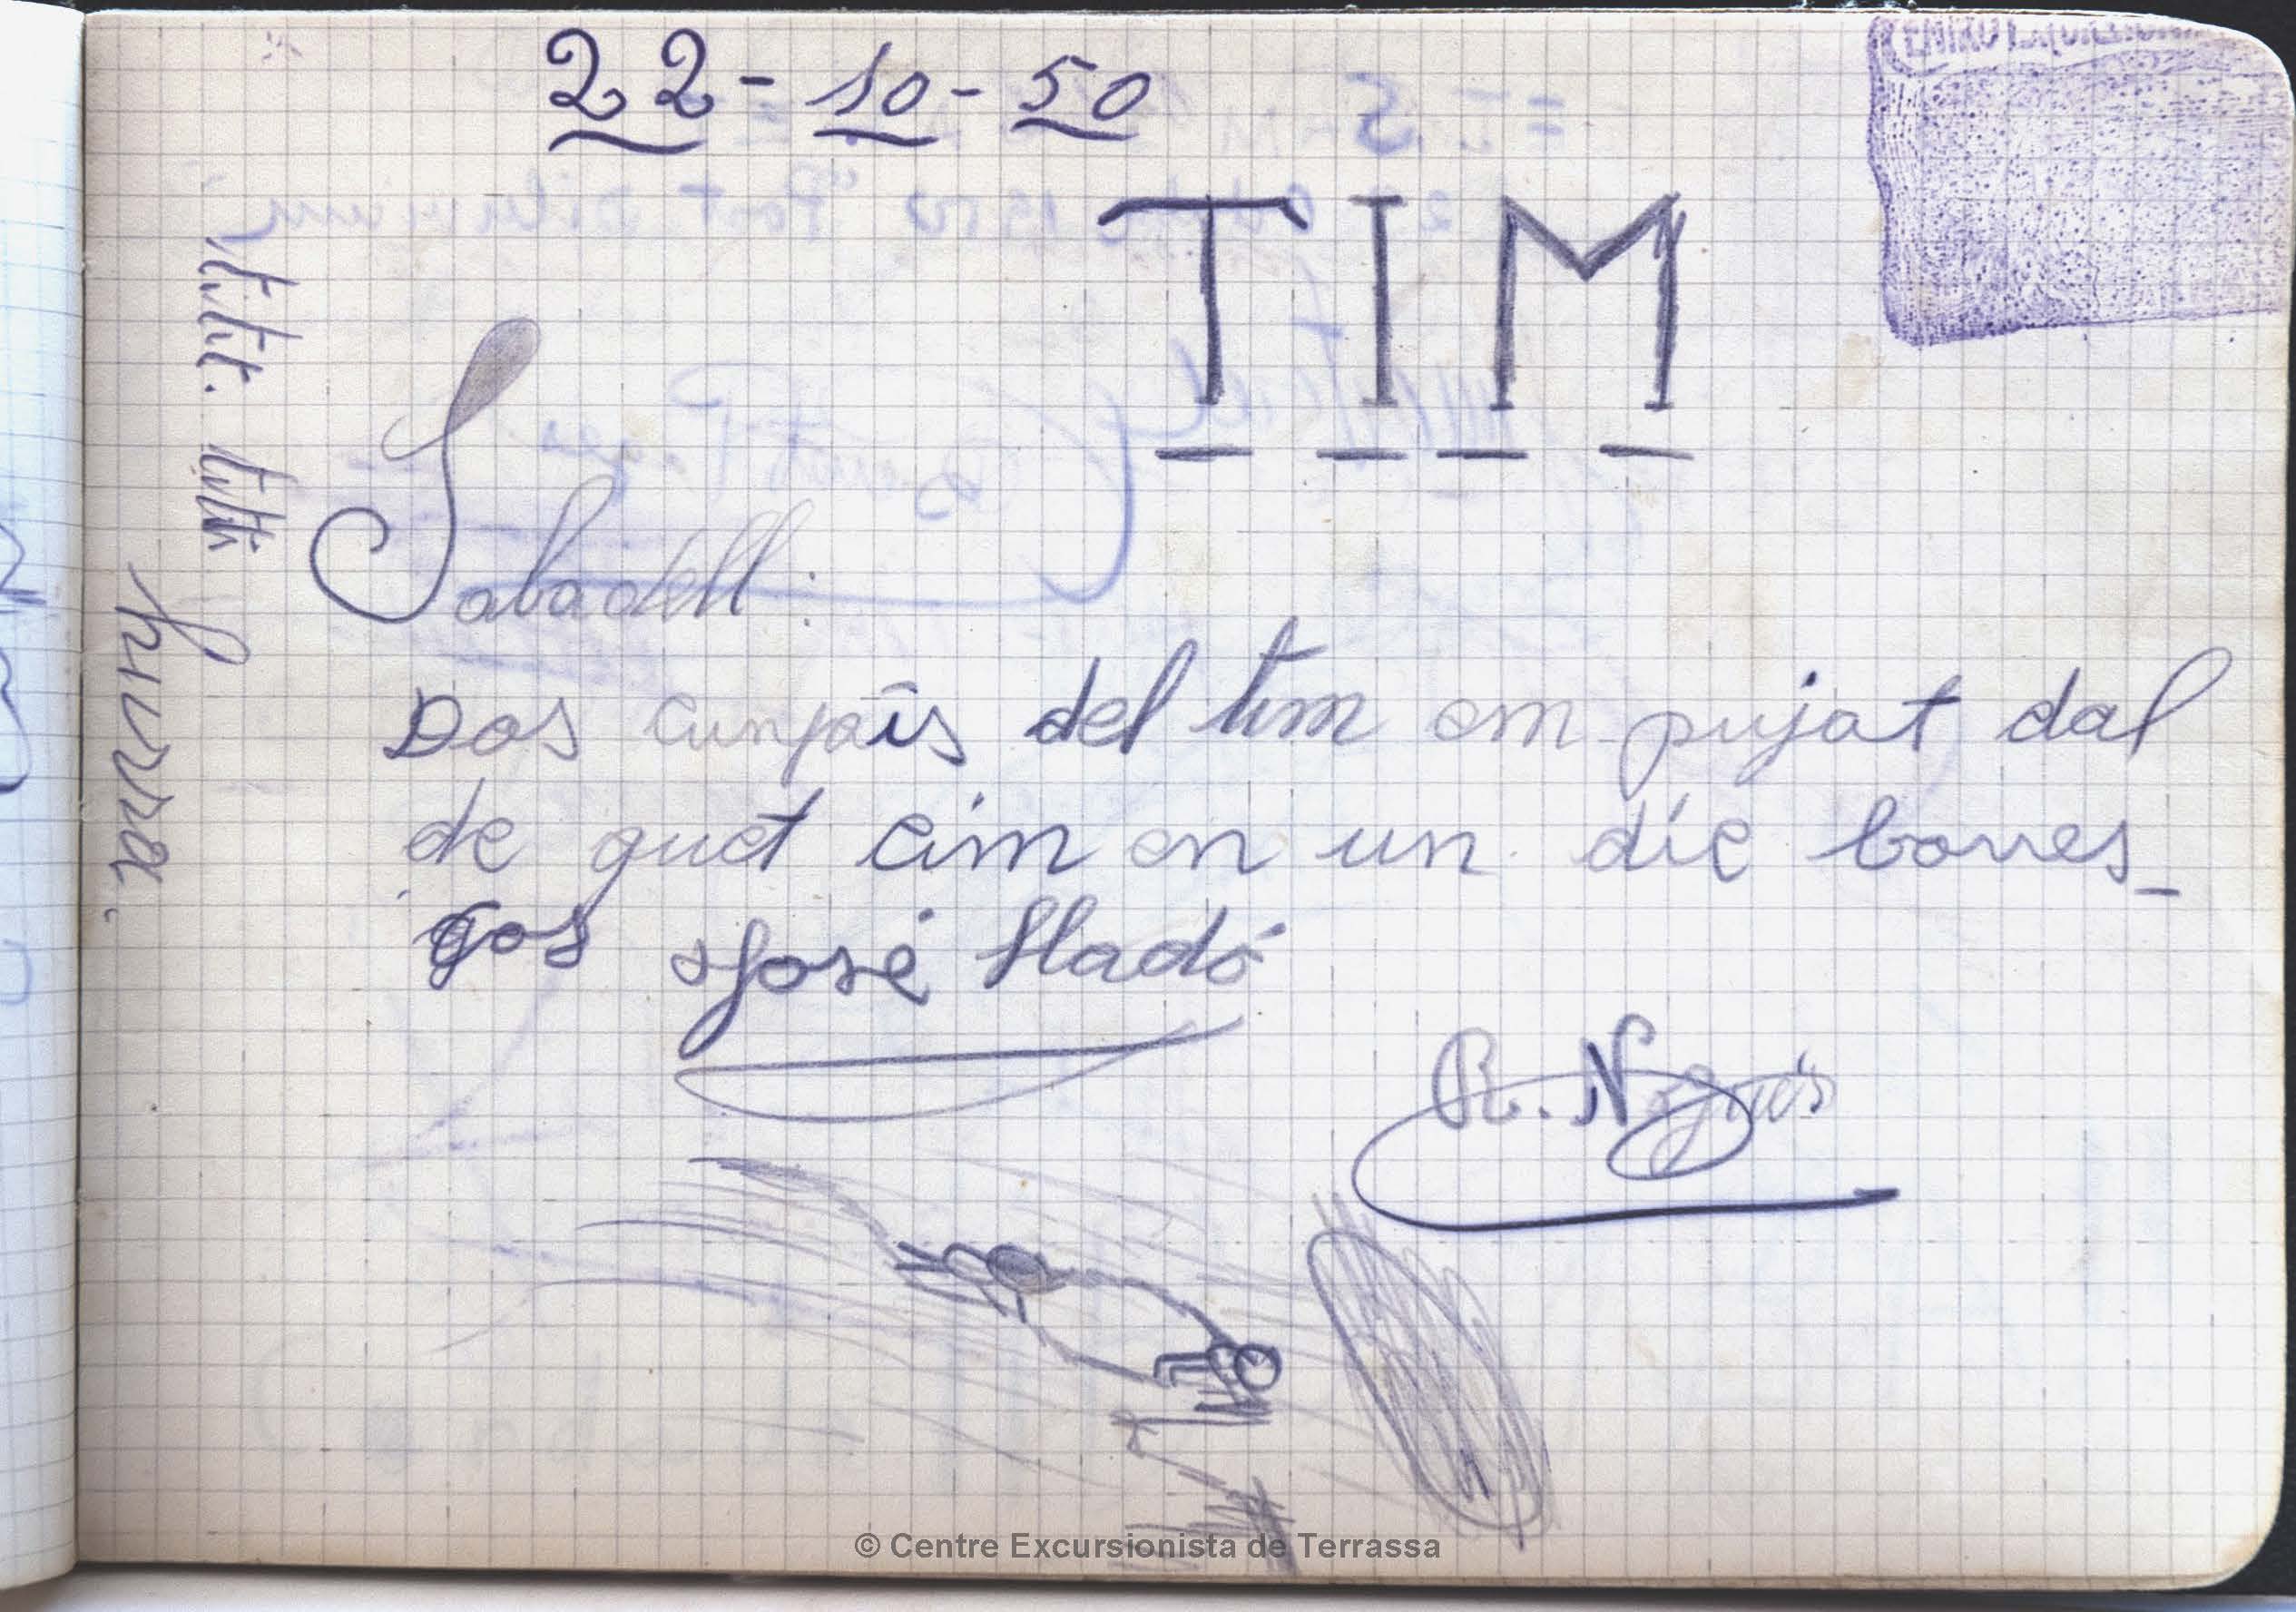 22-10-50
TIM
Sabadell:
Dos cunpais del tim em pujat dal
de quet cim en un díe borres_
gos José Lladó
R. Nogués
hurra.
© Centre Excursionista de Terrassa